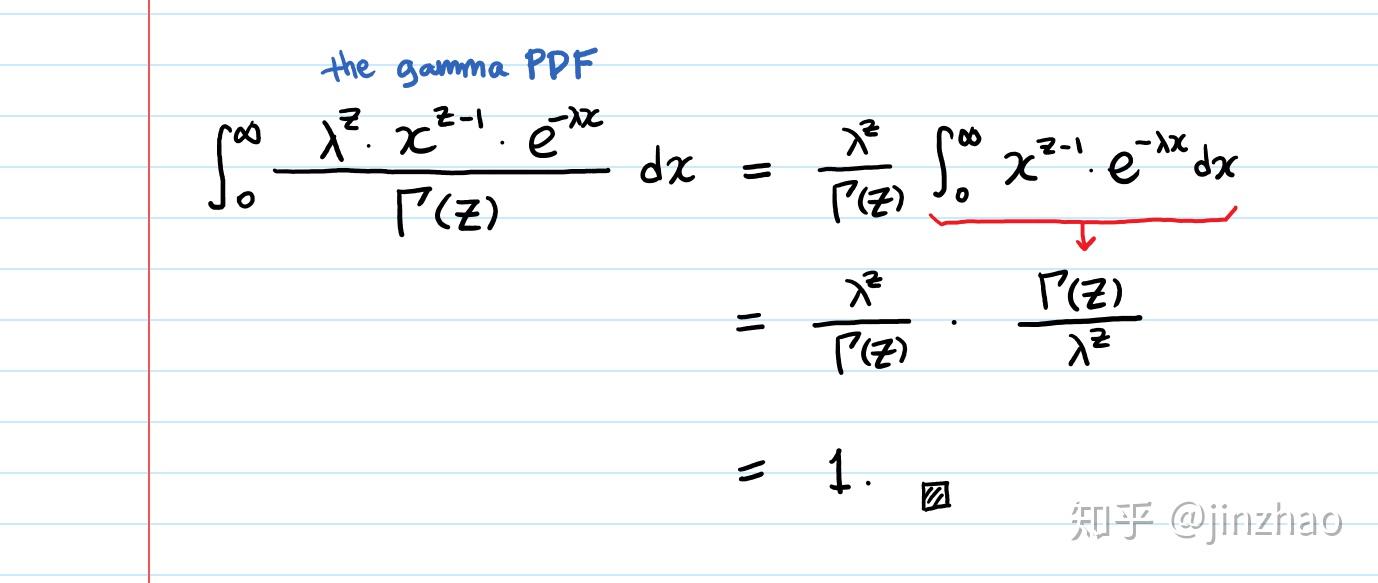 the gamma PDF
∫₀^∞ (λ^z · x^(z-1) · e^(-λx)) / Γ(z) dx = λ^z / Γ(z) ∫₀^∞ x^(z-1) · e^(-λx) dx
= λ^z / Γ(z) · Γ(z) / λ^z
= 1.
知乎 @jinzhao